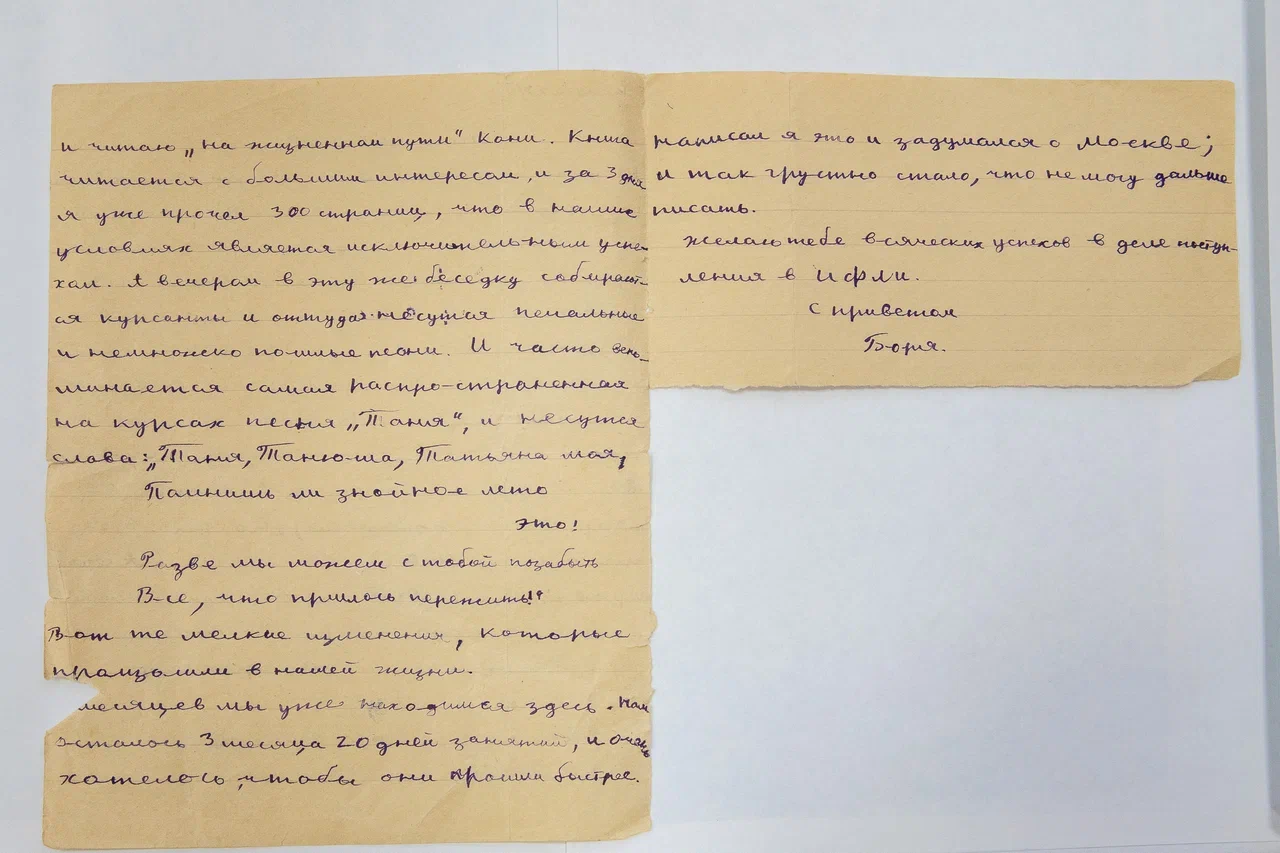 и читаю „на жизненном пути“ Кони. Книга
читается с большим интересом, и за 3 дня
я уже прочел 300 страниц, что в наших
условиях является исключительным успе-
хом. А вечером в эту же беседку собирают-
ся курсанты и оттуда несутся печальные
и немножко пошлые песни. И часто
минается самая распро-страненная
на курсах песня „Таня“, и несутся
слова: „Таня, Танюша, Татьяна моя,
Помнишь ли знойное лето
это!
Разве мы можем с тобой позабыть
Все, что пришлось пережить!“
Вот те мелкие изменения, которые
произошли в нашей жизни.
месяцев мы уже находимся здесь. Нам
осталось 3 месяца 20 дней занятий, и очень
хотелось, чтобы они прошли быстрее.
Написал я это и задумался о Москве;
и так грустно стало, что не могу дальше
писать.
Желаю тебе всяческих успехов в деле поступ-
ления в ИФЛИ.
С приветом
Боря.